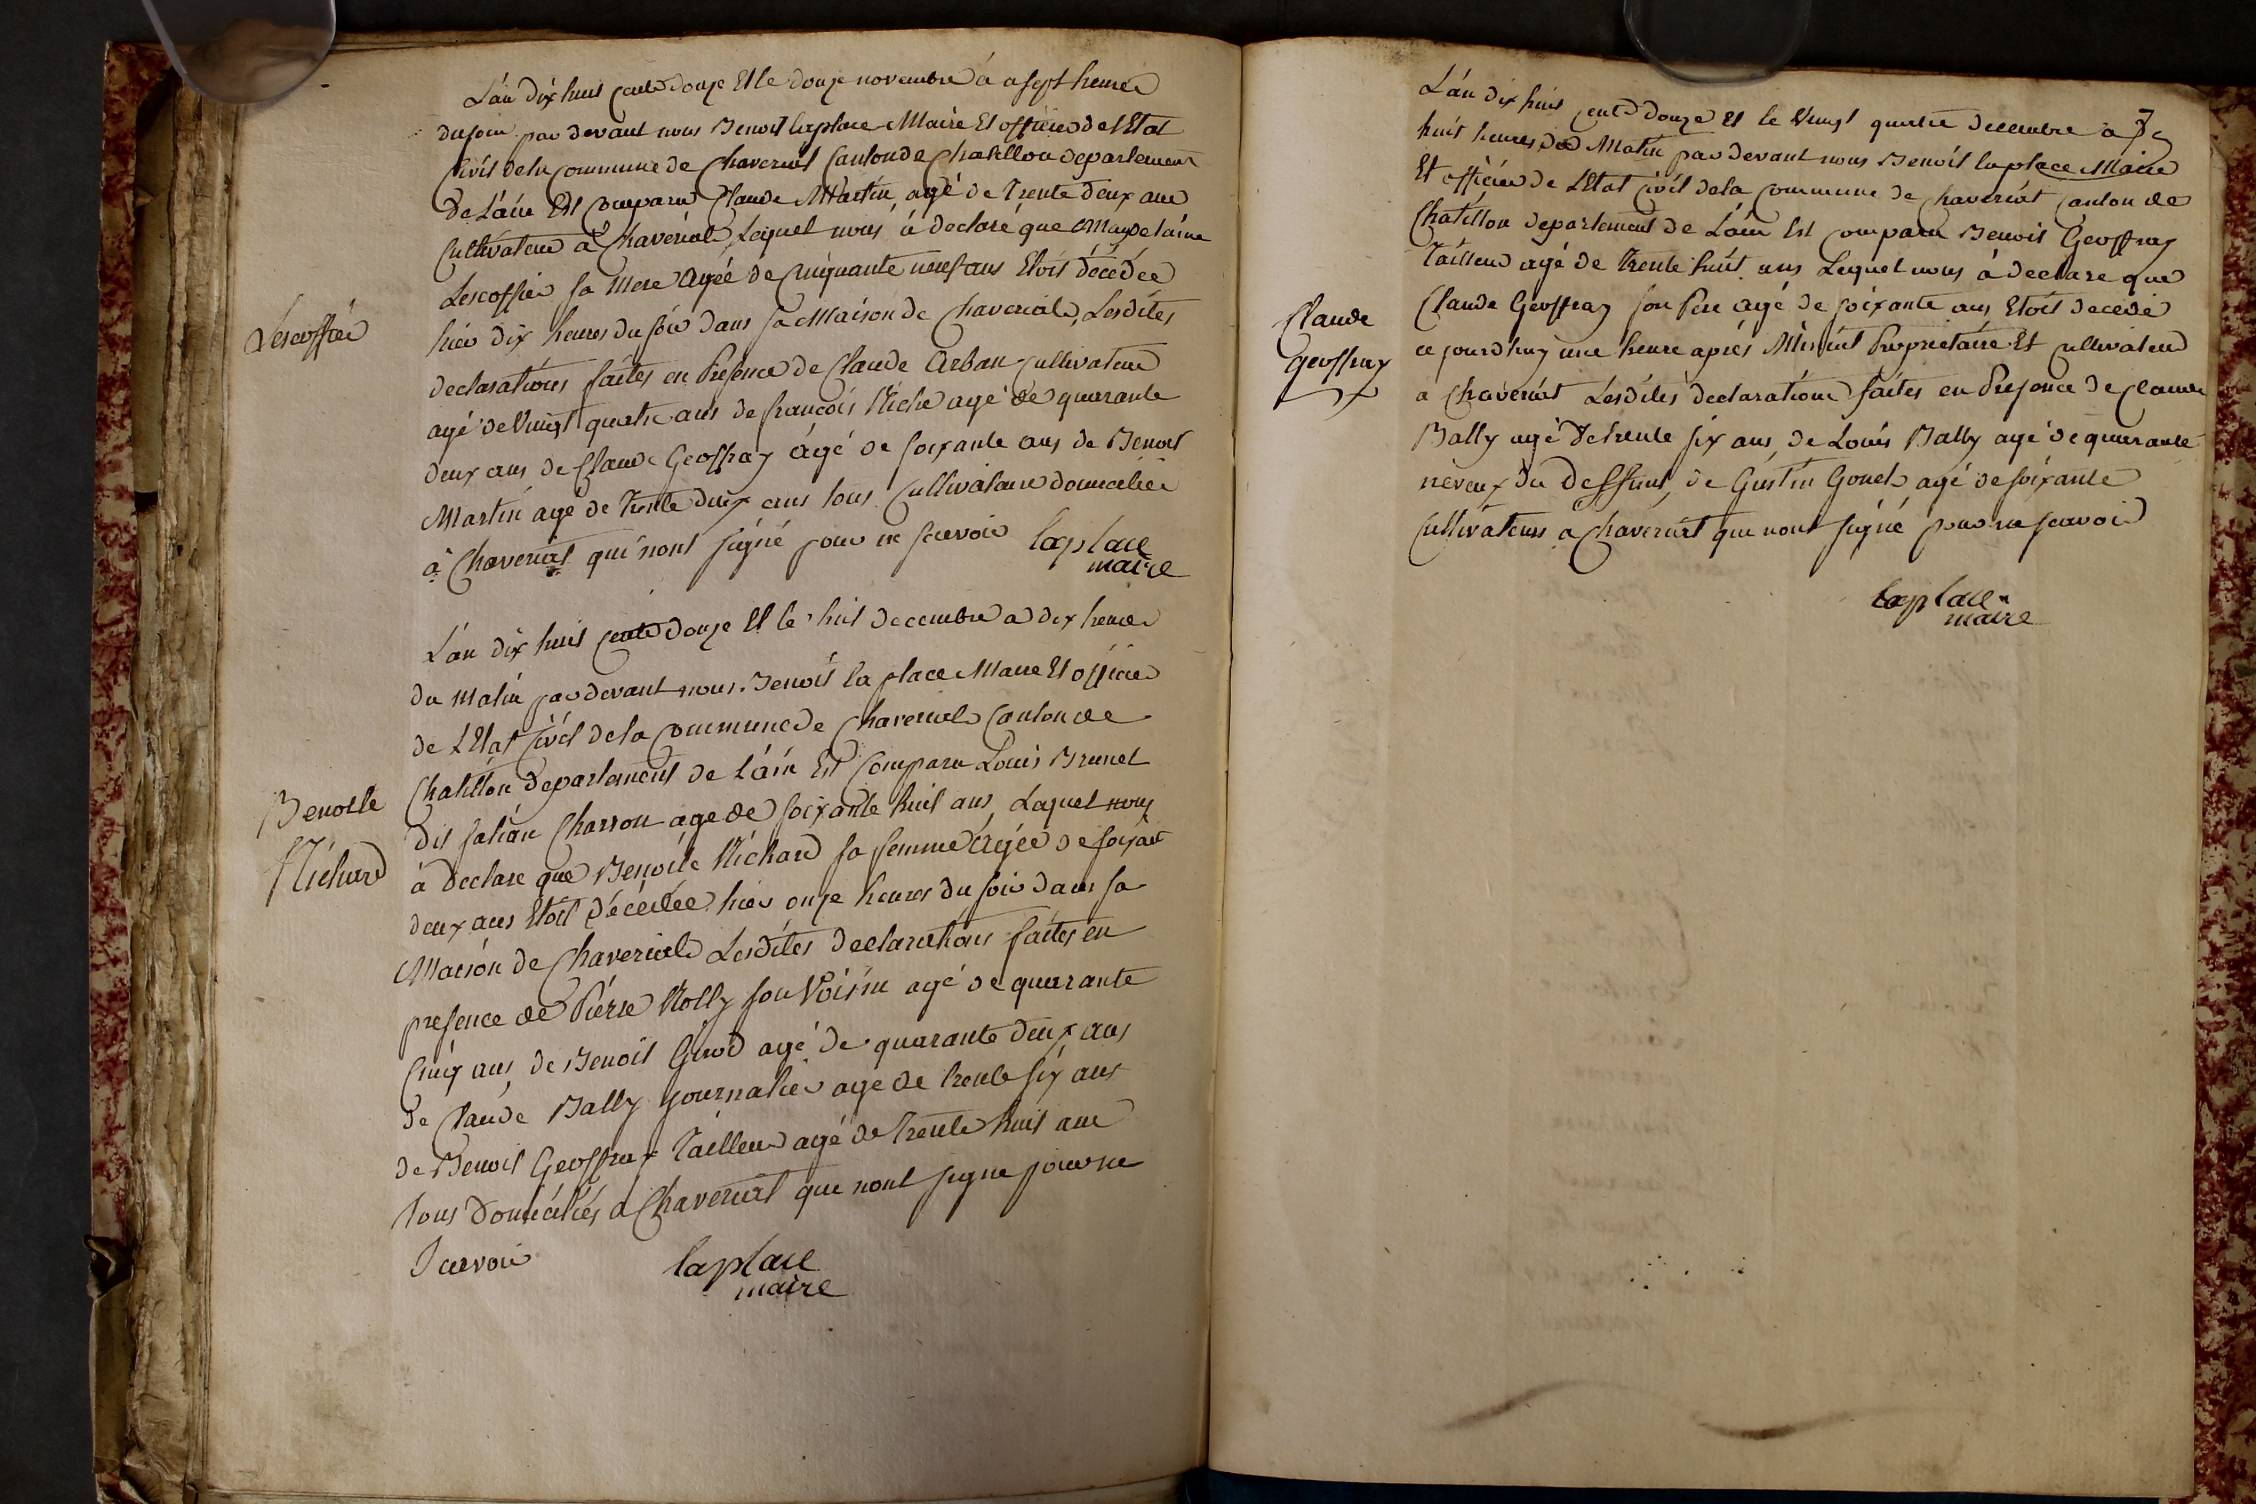 L'an dix huit cent douze Et le douze novembre à a sept heures
du soir par devant nous Benoit laplace Maire Et officier de l'Etat
Civil de la Commune de Chaveriat Canton de Chatillon departement
De L'ain Est comparu Claude Martin agé de Trente deux ans
Cultivateur à Chaveriat, Lequel nous à declaré que Magdelaine
Lescoffier sa Mere Agée de Cinquante neuf ans Etoit décédée
Lescoffier
hier dix heures du soir dans sa Maison de Chaveriat, Lesdites
declarations faites en Presence de Claude Arban Cultivateur
agé de Vingt quatre ans de francois Niche agé de quarante
deux ans de Claude Geoffray âgé de soixante ans de Benoit
Martin agé de Trente deux ans tous Cultivateurs domicelies
à Chaveriat qui n'ont signé pour ne scavoir laplace
maire
L'an dix huit cent douze Et le huit decembre a dix heures
du Matin par devant nous Benoit la place Maire Et officier
de L'Etat Civil de la Commune de Chaveriat Canton de
Chatillon departement de L'ain Est Comparu Louis Brunet
Benoite
Dit Charron age de soixante huit ans, Lequel nous
Michard
à declare que Benoite Michard sa femme Agée de soixante
deux ans Etoit décédée hier onze heures du soir dans sa
Maison de Chaveriat Lesdites declarations faites en
presence de Piérre Rolly son Voisin agé de quarante
Cinq ans de Benoit Girod agé de quarante deux ans
de Claude Bally journalier age de trente six ans
de Benoit Geoffray Tailleur agé de trente huit ans
tous Domiciliés a Chaveriat qui nont signe pour ne
Scavoir laplace
maire
L'an dix huit cent douze Et le Vingt quatre decembre à
huit heures du Matin par devant nous Benoit la place Maire
Et officier de L'Etat Civil de la Commune de Chaveriat Canton de
Chatillon departement de L'ain Est comparu Benoit Geoffray
Tailleur agé de Trente huit ans Lequel nous à declare que
Claude
Claude Geoffray son Pere agé de soixante ans Etoit decedé
geoffray
ce jourdhuy une heure aprés Minuit Proprietaire Et Cultivateur
a Chaveriat Lesdites declarations faites en Presence de Claude
Bally agé de trente six ans, de Louis Bally agé de quarante
neveux du deffunt, de Gustin Gonet agé de soixante
Cultivateurs a Chaveriat qui nont signé pour ne scavoir
laplace
maire